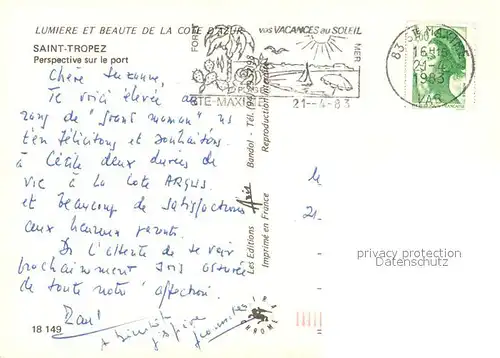 LUMIERE ET BEAUTE DE LA COTE D'AZUR
SAINT-TROPEZ
Perspective sur le port
vos VACANCES au SOLEIL
FORET
MER
STE-MAXIME
21-4-83
83 STE MAXIME
16H15
21-4
1983
VAR
Chère Suzanne,
Te voici élevée au
rang de "grand maman" ns
t'en félicitons et souhaitons
à Cécile deux durées de
vie à la Cote ARGUS
et beaucoup de satisfactions
aux heureux parents.
Ds l'attente de te voir
prochainement sois assurée
de toute notre affection.
A bientôt
j'espère
Les Editions Aris Bandol - Tél.
Imprimé en France Reproduction interdite
M
21
privacy protection
Datenschutz
18 149